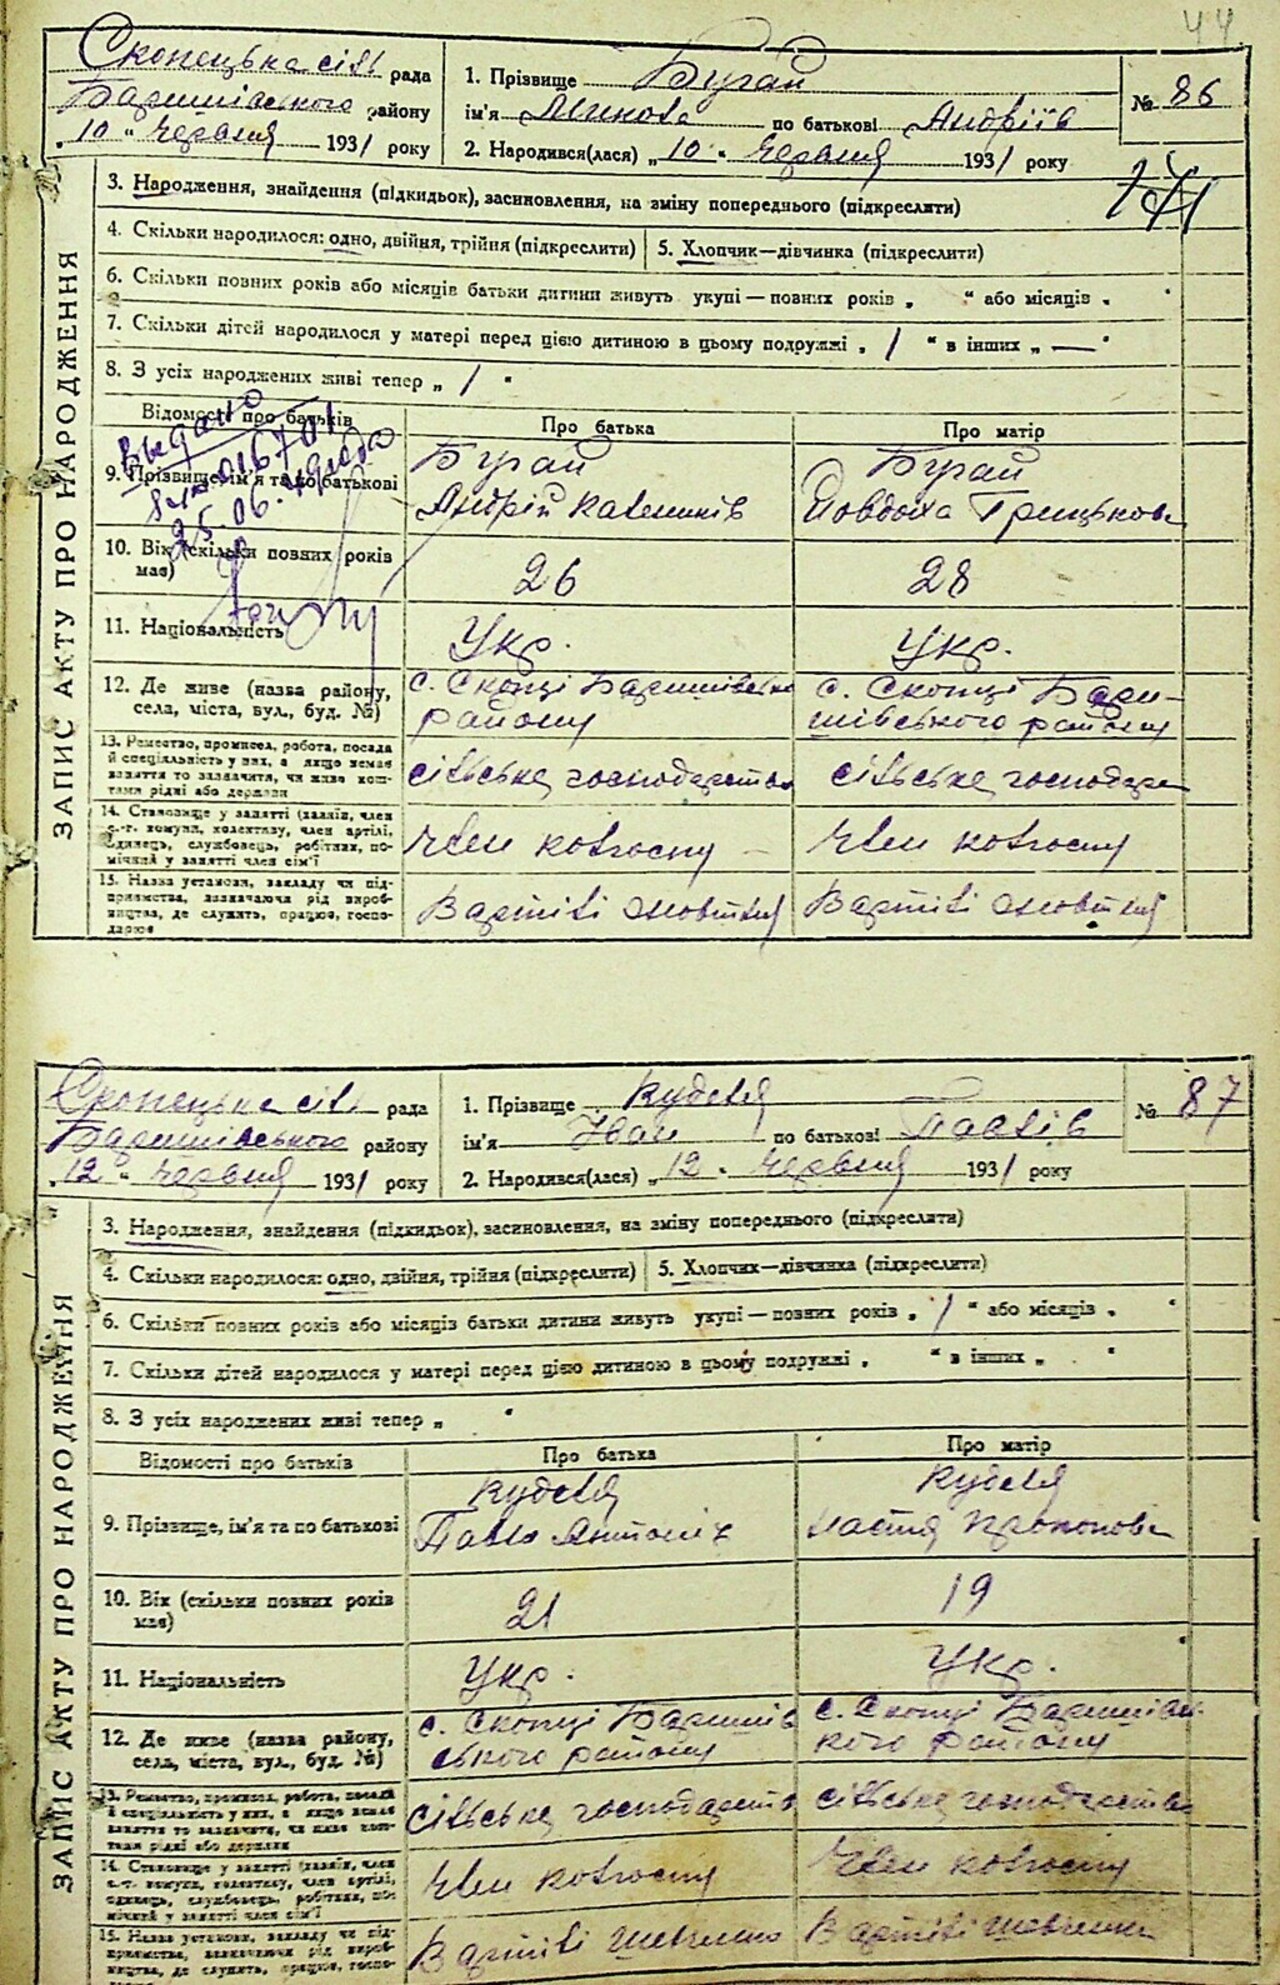 44
Скопецька сіль рада
Баришівського району
„10“ Червня 1931 року
1. Прізвище Бугай
ім'я Микола по батькові Андріїв
2. Народився(лася) „10“ Червня 1931 року
№ 86
3. Народження, знайдення (підкидьок), засиновлення, на зміну попереднього (підкреслити)
4. Скільки народилося: одно, двійня, трійня (підкреслити)
5. Хлопчик—дівчинка (підкреслити)
6. Скільки повних років або місяців батьки дитини живуть укупі — повних років „ “ або місяців „ “
7. Скільки дітей народилося у матері перед цією дитиною в цьому подружжі „ 1 “ в інших „ — “
8. З усіх народжених живі тепер „ 1 “
ЗАПИС АКТУ ПРО НАРОДЖЕННЯ
Відомості про батьків
Про батька
Про матір
9. Прізвище, ім'я та по батькові
Бугай
Андрій Калеників
Бугай
Йовдоха Грицькова
25.06.
10. Вік (скільки повних років має)
26
28
11. Національність
Укр.
Укр.
12. Де живе (назва району,
села, міста, вул., буд. №)
с. Скопці Баришівсько
району
с. Скопці Бари-
шівського району
13. Ремество, промисел, робота, посада
й спеціяльність у них, а якщо немає
заняття то зазначити, чи живе кош-
тами рідні або держави
сільське господарство
сільське господар
14. Становище у занятті (хазяїн, член
с.-г. комуни, колективу, член артілі,
одинець, службовець, робітник, по-
мічний у занятті член сім'ї
Член колгоспу
Член колгоспу
15. Назва установи, закладу чи під-
приємства, зазначаючи рід вироб-
ництва, де служить, працює, госпо-
дарює
В артілі Жовтня
В артілі Жовтня
Скопецька сіль рада
Баришівського району
„12“ Червня 1931 року
1. Прізвище Куделя
ім'я Іван по батькові Павлів
2. Народився(лася) „12“ Червня 1931 року
№ 87
3. Народження, знайдення (підкидьок), засиновлення, на зміну попереднього (підкреслити)
4. Скільки народилося: одно, двійня, трійня (підкреслити)
5. Хлопчик—дівчинка (підкреслити)
6. Скільки повних років або місяців батьки дитини живуть укупі — повних років „ 1 “ або місяців „ “
7. Скільки дітей народилося у матері перед цією дитиною в цьому подружжі „ “ в інших „ “
8. З усіх народжених живі тепер „ “
ЗАПИС АКТУ ПРО НАРОДЖЕННЯ
Відомості про батьків
Про батька
Про матір
9. Прізвище, ім'я та по батькові
Куделя
Павло Антонів
Куделя
Настя Прокопова
10. Вік (скільки повних років
має)
21
19
11. Національність
Укр.
Укр.
12. Де живе (назва району,
села, міста, вул., буд. №)
с. Скопці Баришів
ського району
с. Скопці Баришівсь-
кого району
13. Ремество, промисел, робота, посада
й спеціяльність у них, а якщо немає
заняття то зазначити, чи живе кош-
тами рідні або держави
сільське господарств
сільське господарство
14. Становище у занятті (хазяїн, член
с.-г. комуни, колективу, член артілі,
одинець, службовець, робітник, по-
мічний у занятті член сім'ї
Член колгоспу
Член колгоспу
15. Назва установи, закладу чи під-
приємства, зазначаючи рід вироб-
ництва, де служить, працює, госпо-
В артілі Шевченко
В артілі Шевченка